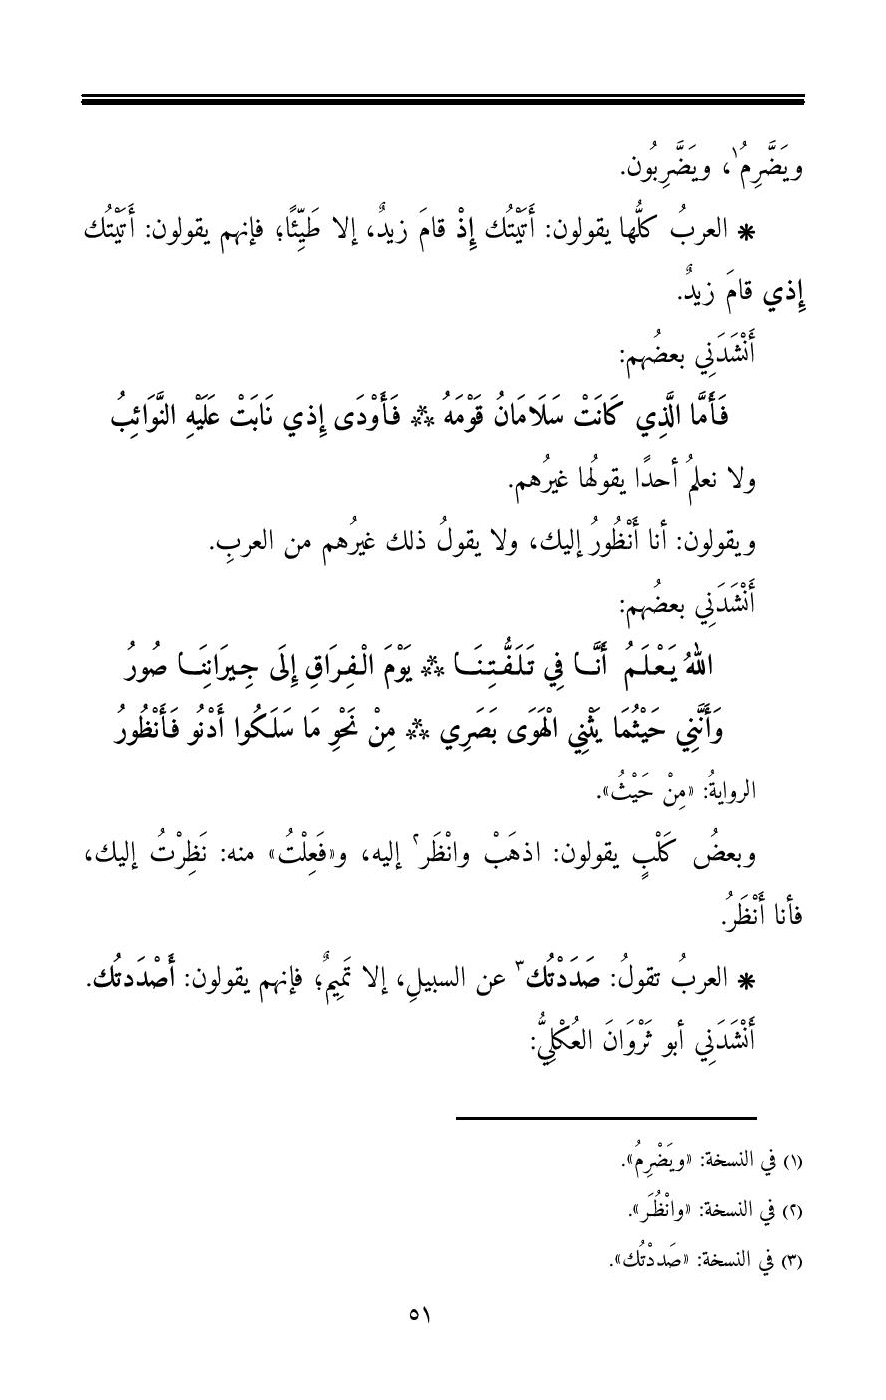 ويَضَّرِمُ١، ويَضَّرِبُون.
* العربُ كلُّها يقولون: أَتَيْتُك إِذْ قامَ زيدٌ، إلا طَيِّئًا؛ فإنهم يقولون: أَتَيْتُك
إِذي قامَ زيدٌ.
أَنْشَدَنِي بعضُهم:
فَأَمَّا الَّذِي كَانَتْ سَلَامَانُ قَوْمَهُ ** فَأَوْدَى إِذي نَابَتْ عَلَيْهِ النَّوَائِبُ
ولا نعلمُ أحدًا يقولُها غيرُهم.
ويقولون: أنا أَنْظُورُ إليك، ولا يقولُ ذلك غيرُهم من العربِ.
أَنْشَدَنِي بعضُهم:
اللهُ يَعْلَمُ أَنَّا فِي تَلَفُّتِنَا ** يَوْمَ الْفِرَاقِ إِلَى جِيرَانِنَا صُورُ
وَأَنَّنِي حَيْثُمَا يَثْنِي الْهَوَى بَصَرِي ** مِنْ نَحْوِ مَا سَلَكُوا أَدْنُو فَأَنْظُورُ
الروايةُ: «مِنْ حَيْثُ».
وبعضُ كَلْبٍ يقولون: اذهَبْ وانْظَر٢ إليه، و«فَعِلْتُ» منه: نَظِرْتُ إليك،
فأنا أَنْظَرُ.
* العربُ تقولُ: صَدَدْتُك٣ عن السبيلِ، إلا تَمِيمٌ؛ فإنهم يقولون: أَصْدَدتُك.
أَنْشَدَنِي أبو ثَرْوَانَ العُكْلِيُّ:
(١) في النسخة: «ويَضْرِمُ».
(٢) في النسخة: «وانْظُرَ».
(٣) في النسخة: «صَددْتُك».
٥١